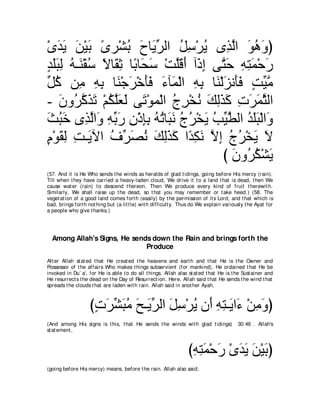 (وَهُوَ الَّذِى يُرْسِلُ الرِّيَاحَ بُشْرًى بَيْنَ يَدَىْ
رَحْمَتِهِ حَتَّى إِذَآ أَقَلَّتْ سَحَابًا ثِقَالاً سُقْنَـهُ لِبَلَدٍ
مَّيِّتٍ فَأَنزَلْنَا بِهِ الْمَآءَ فَأَخْرَجْنَا بِهِ مِن كُلِّ
الثَّمَرَتِ كَذلِكَ نُخْرِجُ الْموْتَى لَعَلَّكُمْ تَذَكَّرُونَ -
وَالْبَلَدُ الطَّيِّبُ يَخْرُجُ نَبَاتُهُ بِإِذْنِ رَبِّهِ وَالَّذِى خَبُثَ
لاَ يَخْرُجُ إِلاَّ نَكِدًا كَذلِكَ نُصَرِّفُ الآيَـتِ لِقَوْمٍ
يَشْكُرُونَ )
(57. And it is He Who sends the winds as heralds of glad tidings, going before His mercy (rain).
Till when they have carried a heavy-laden cloud, We drive it to a land that is dead, then We
cause water (rain) to descend thereon. Then We produce every kind of fruit therewith.
Similarly, We shall raise up the dead, so that you may remember or take heed.) (58. The
vegetation of a good land comes forth (easily) by the permission of its Lord; and that which is
bad, brings forth nothing but (a little) with difficulty. Thus do We explain variously the Ayat for
a people who give thanks.)
Among Allah's Signs, He sends down the Rain and brings forth the
Produce
After Allah stated that He created the heavens and earth and that He is the Owner and
Possessor of the affairs Who makes things subservient (for mankind), He ordained that He be
invoked in Du`a', for He is able to do all things. Allah also stated that He is the Sustainer and
He resurrects the dead on the Day of Resurrection. Here, Allah said that He sends the wind that
spreads the clouds that are laden with rain. Allah said in another Ayah,
(وَمِنْ ءَايَـتِهِ أَن يُرْسِلَ الرِّيَـحَ مُبَشِّرَتٍ)
(And among His signs is this, that He sends the winds with glad tidings) 30:46 . Allah's
statement,
(بَيْنَ يَدَىْ رَحْمَتِهِ)
(going before His mercy) means, before the rain. Allah also said;